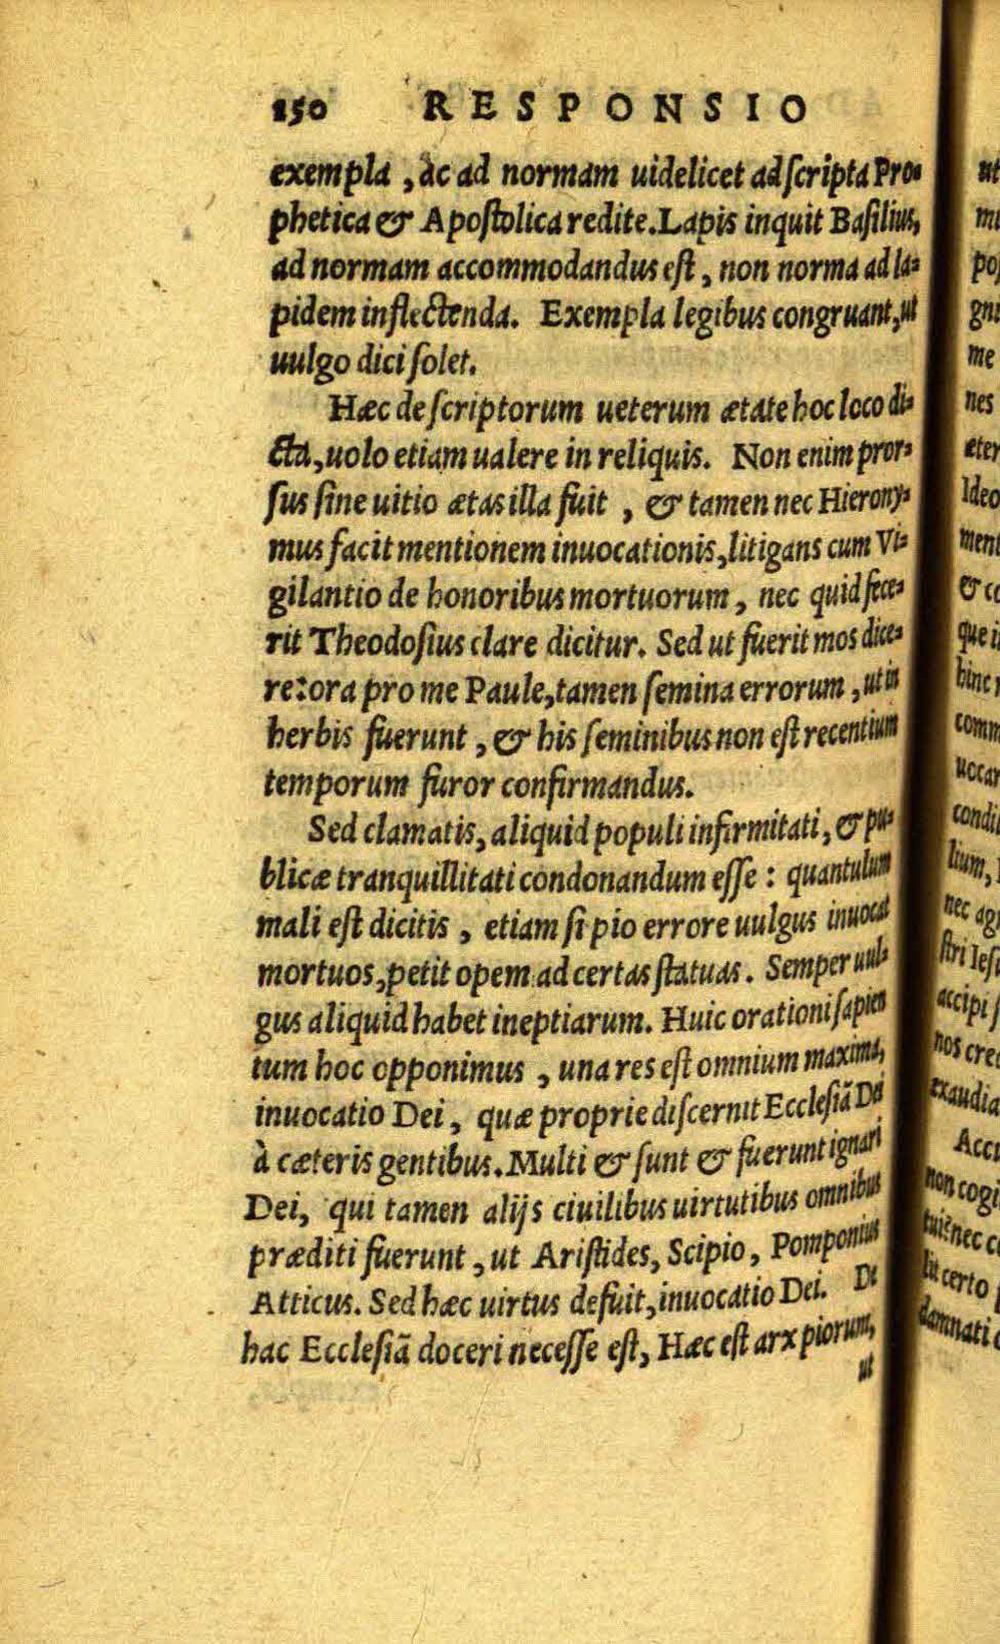 150 RESPONSIO
exempla, ac ad normam uidelicet ad scripta Pro-
phetica & Apostolica redite. Lapis inquit Basilius,
ad normam accommodandus est, non norma ad la-
pidem inflectenda. Exempla legibus congruant, ut
uulgo dici solet.
Hæc de scriptorum ueterum ætate hoc loco di-
cta, uolo etiam ualere in reliquis. Non enim pror-
sus sine uitio ætas illa fuit, & tamen nec Hierony-
mus facit mentionem inuocationis, litigans cum Vi-
gilantio de honoribus mortuorum, nec quid fece-
rit Theodosius clare dicitur. Sed ut fuerit mos dice-
re: ora pro me Paule, tamen semina errorum, ut in
herbis fuerunt, & his seminibus non est recentium
temporum furor confirmandus.
Sed clamatis, aliquid populi infirmitati, & pu-
blicæ tranquillitati condonandum esse: quantulum
mali est dicitis, etiam si pio errore uulgus inuocat
mortuos, petit opem ad certas statuas. Semper uul-
gus aliquid habet ineptiarum. Huic orationi sapien
tum hoc opponimus, una res est omnium maxima,
inuocatio Dei, quæ proprie discernit Ecclesiā Dei
à cæteris gentibus. Multi & sunt & fuerunt ignari
Dei, qui tamen alijs ciuilibus uirtutibus omnibus
præditi fuerunt, ut Aristides, Scipio, Pomponius
Atticus. Sed hæc uirtus defuit, inuocatio Dei. De
hac Ecclesiā doceri necesse est, Hæc est arx piorum,
ut
ut
me
nes
Ideo
& cc
que i
hinc
comm
uocar
lium,
nec ag
stri Ies
accipi
nos cre
exaudia
Acc
non cogi
nec c
certo
damnati